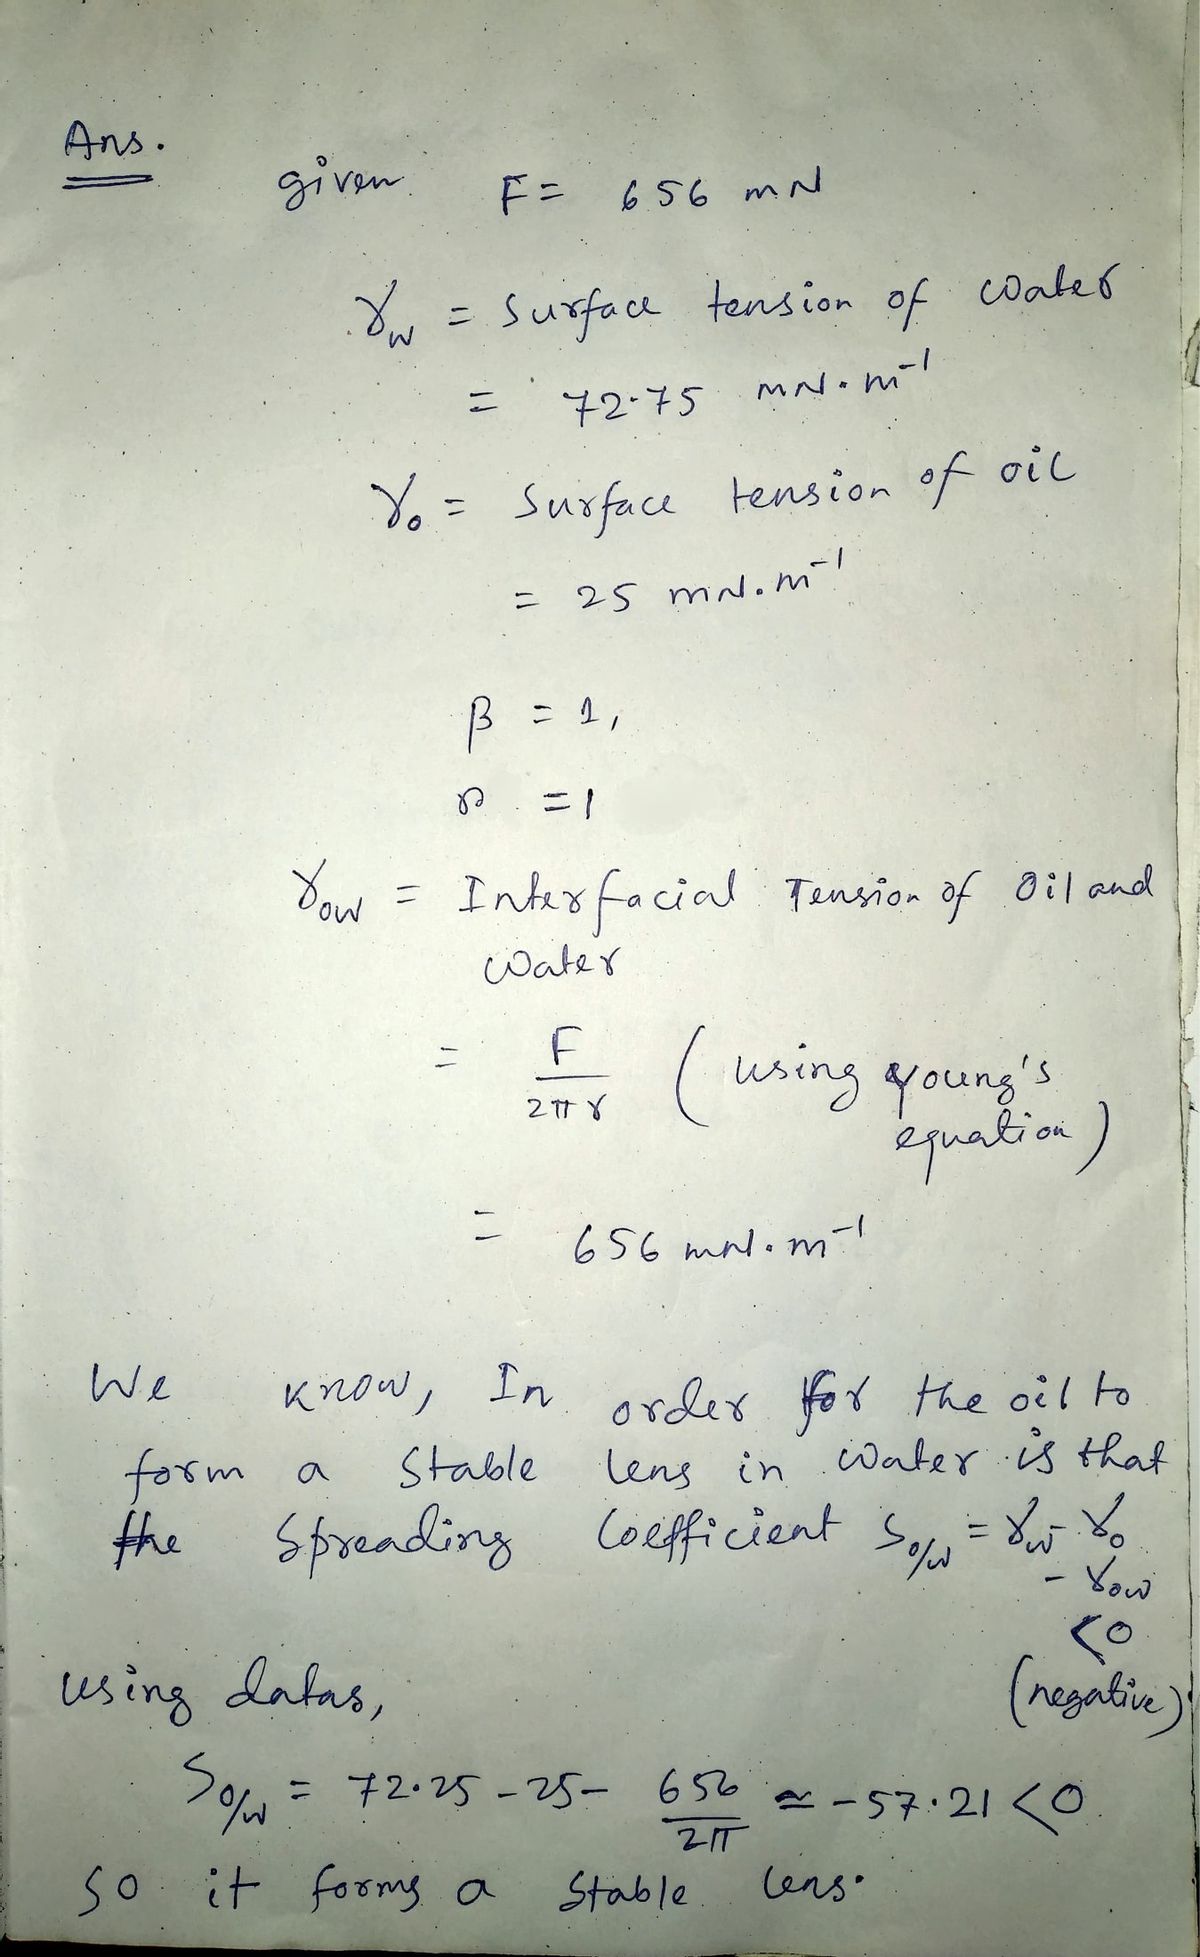 Ans.
given F = 656 mN
γw = Surface tension of water
= 72.75 mN.m⁻¹
γo = Surface tension of oil
= 25 mN.m⁻¹
β = 1,
r = 1
γow = Interfacial Tension of Oil and
water
= F/2πr (using young's
equation)
= 656 mN.m⁻¹
We know, In order for the oil to
form a stable lens in water is that
the Spreading Coefficient So/w = γw - γo
- γow
<0
(negative)
using datas,
So/w = 72.25 - 25 - 656/2π ≃ -57.21 <0
so it forms a stable lens.